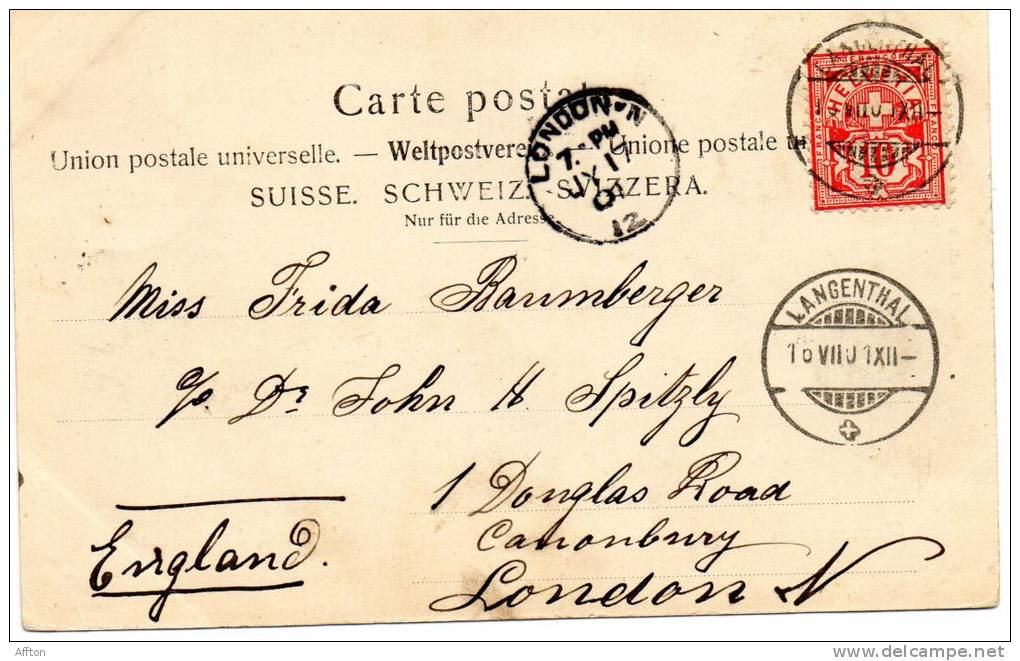 Carte postale
Union postale universelle. — Weltpostverein — Unione postale
SUISSE. SCHWEIZ. SVIZZERA.
Nur für die Adresse
LONDON·N
7 - PM
JY 17
01
12
HELVETIA
FRANCO
10
Miss Frida Baumberger
c/o Dr John H. Spitzly
1 Douglas Road
Canonbury
London N
England.
LANGENTHAL
16 VII 01 XII–
Afton
www.delcampe.net